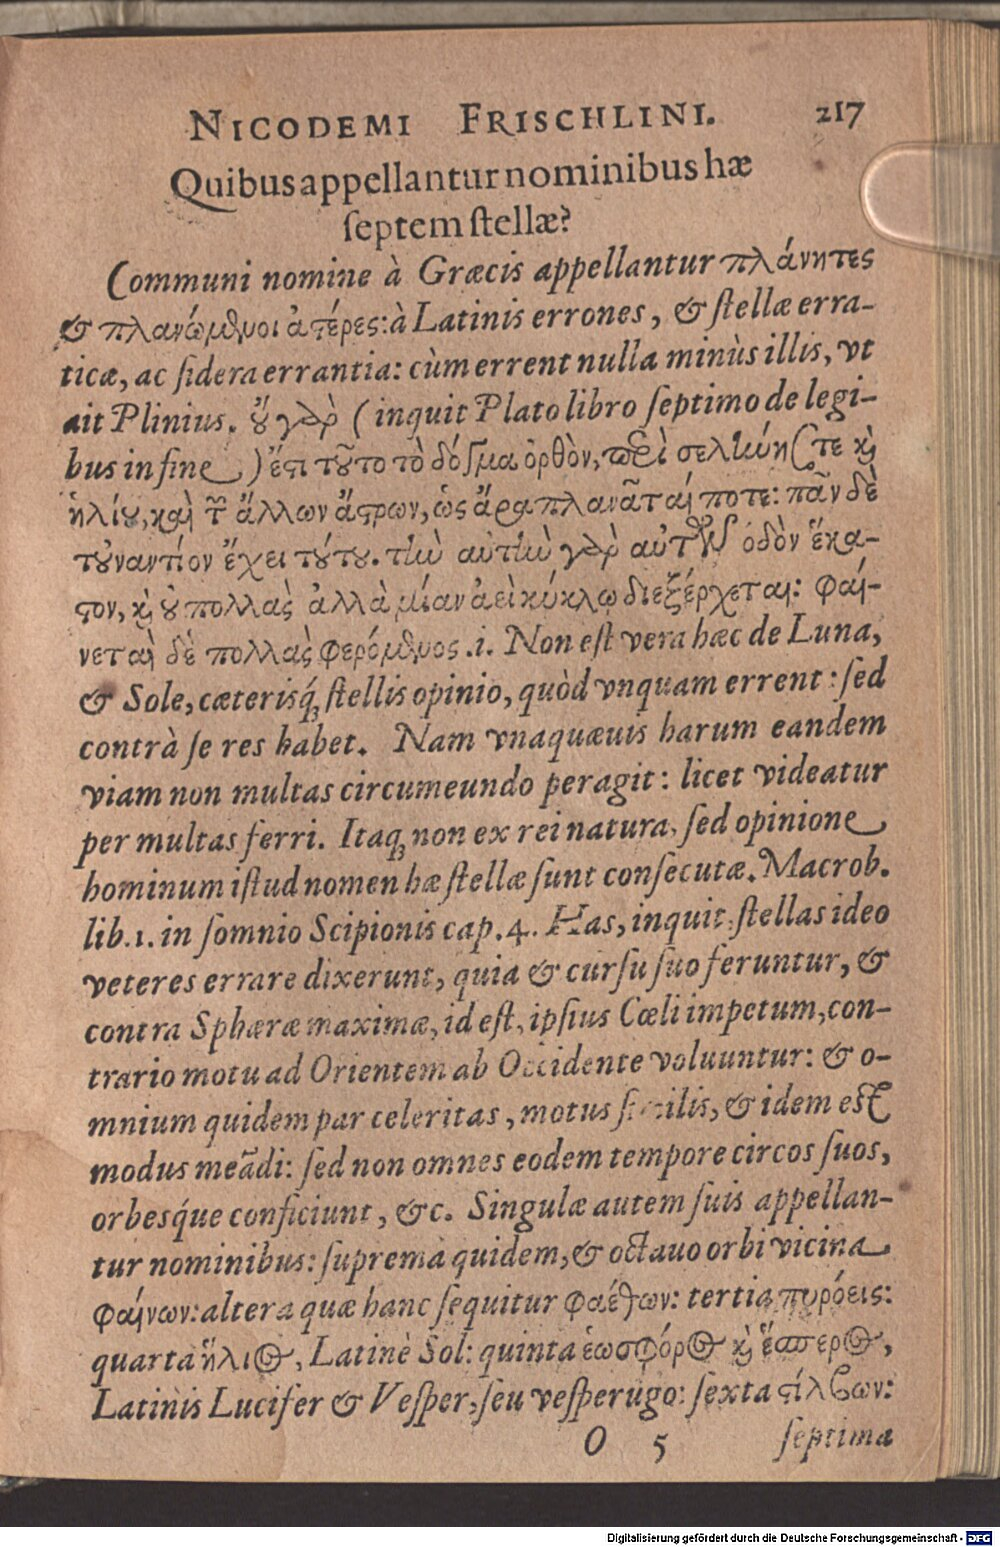 NICODEMI FRISCHLINI. 217
Quibus appellantur nominibus hæ
ſeptem ſtellæ?
Communi nomine à Græcis appellantur πλάνητες
& πλανώμϑνοι ἀϛέρες: à Latinis errones, & ſtellæ erra-
ticæ, ac ſidera errantia: cùm errent nulla minùs illis, vt
ait Plinius. ȣ̓ γὰρ (inquit Plato libro ſeptimo de legi-
bus in fine) ἔϛι τȣ͂το τὸ δόγμα ὀρθὸν, περὶ σελήνης τε κỳ
ἡλίȣ, καὶ τ͂ ἄλλων ἄϛρων, ὡς ἄρα πλανᾶταί ποτε: πᾶν δὲ
τȣ̓ναντίον ἔχει τȣ́τȣ. τὴν αὐτὴν γὰρ αὐτῶν ὁδὸν ἕκα-
ϛον, κỳ ȣ̓ πολλὰς ἀλλὰ μίαν ἀεὶ κύκλῳ διεξέρχεται: φαί-
νεται δὲ πολλὰς φερόμϑνος .i. Non eſt vera hæc de Luna,
& Sole, cæteriſq́; ſtellis opinio, quòd vnquam errent: ſed
contrà ſe res habet. Nam vnaquæuis harum eandem
viam non multas circumeundo peragit: licet videatur
per multas ferri. Itaq; non ex rei natura, ſed opinione
hominum iſtud nomen hæ ſtellæ ſunt conſecutæ. Macrob.
lib. 1. in ſomnio Scipionis cap. 4. Has, inquit, ſtellas ideo
veteres errare dixerunt, quia & curſu ſuo feruntur, &
contra Sphæræ maximæ, id eſt, ipſius Cœli impetum, con-
trario motu ad Orientem ab Occidente voluuntur: & o-
mnium quidem par celeritas, motus ſimilis, & idem eſt
modus meādi: ſed non omnes eodem tempore circos ſuos,
orbesq́ue conficiunt, &c. Singulæ autem ſuis appellan-
tur nominibus: ſuprema quidem, & octauo orbi vicina
φαίνων: altera quæ hanc ſequitur φαέθων: tertia πυρόεις:
quarta ἥλιος, Latinè Sol: quinta ἑωσφόρος κỳ ἕσπερος,
Latinis Lucifer & Veſper, ſeu veſperugo: ſexta ϛίλβων:
O 5 ſeptima
Digitalisierung gefördert durch die Deutsche Forschungsgemeinschaft - DFG